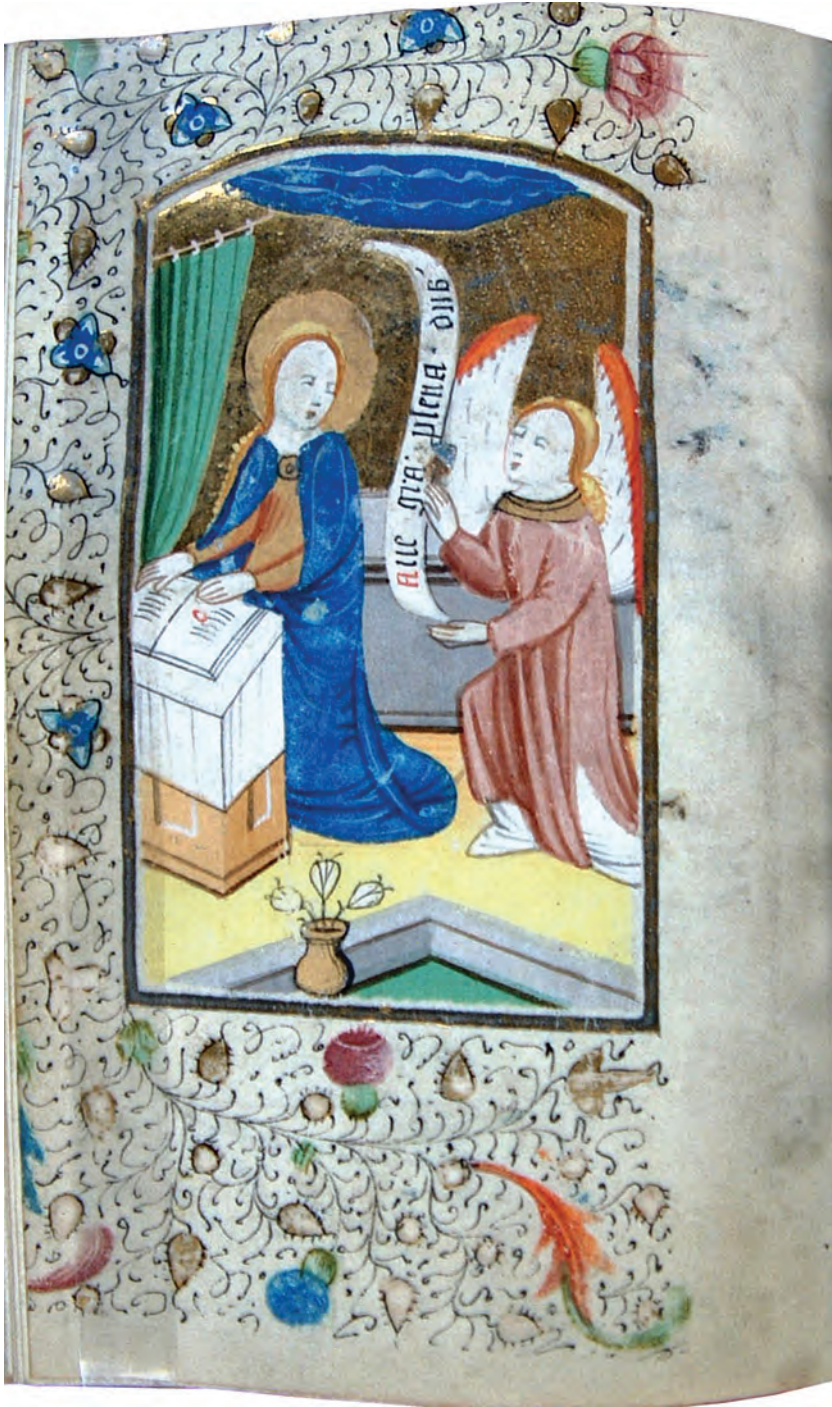 Aue gra plena dns